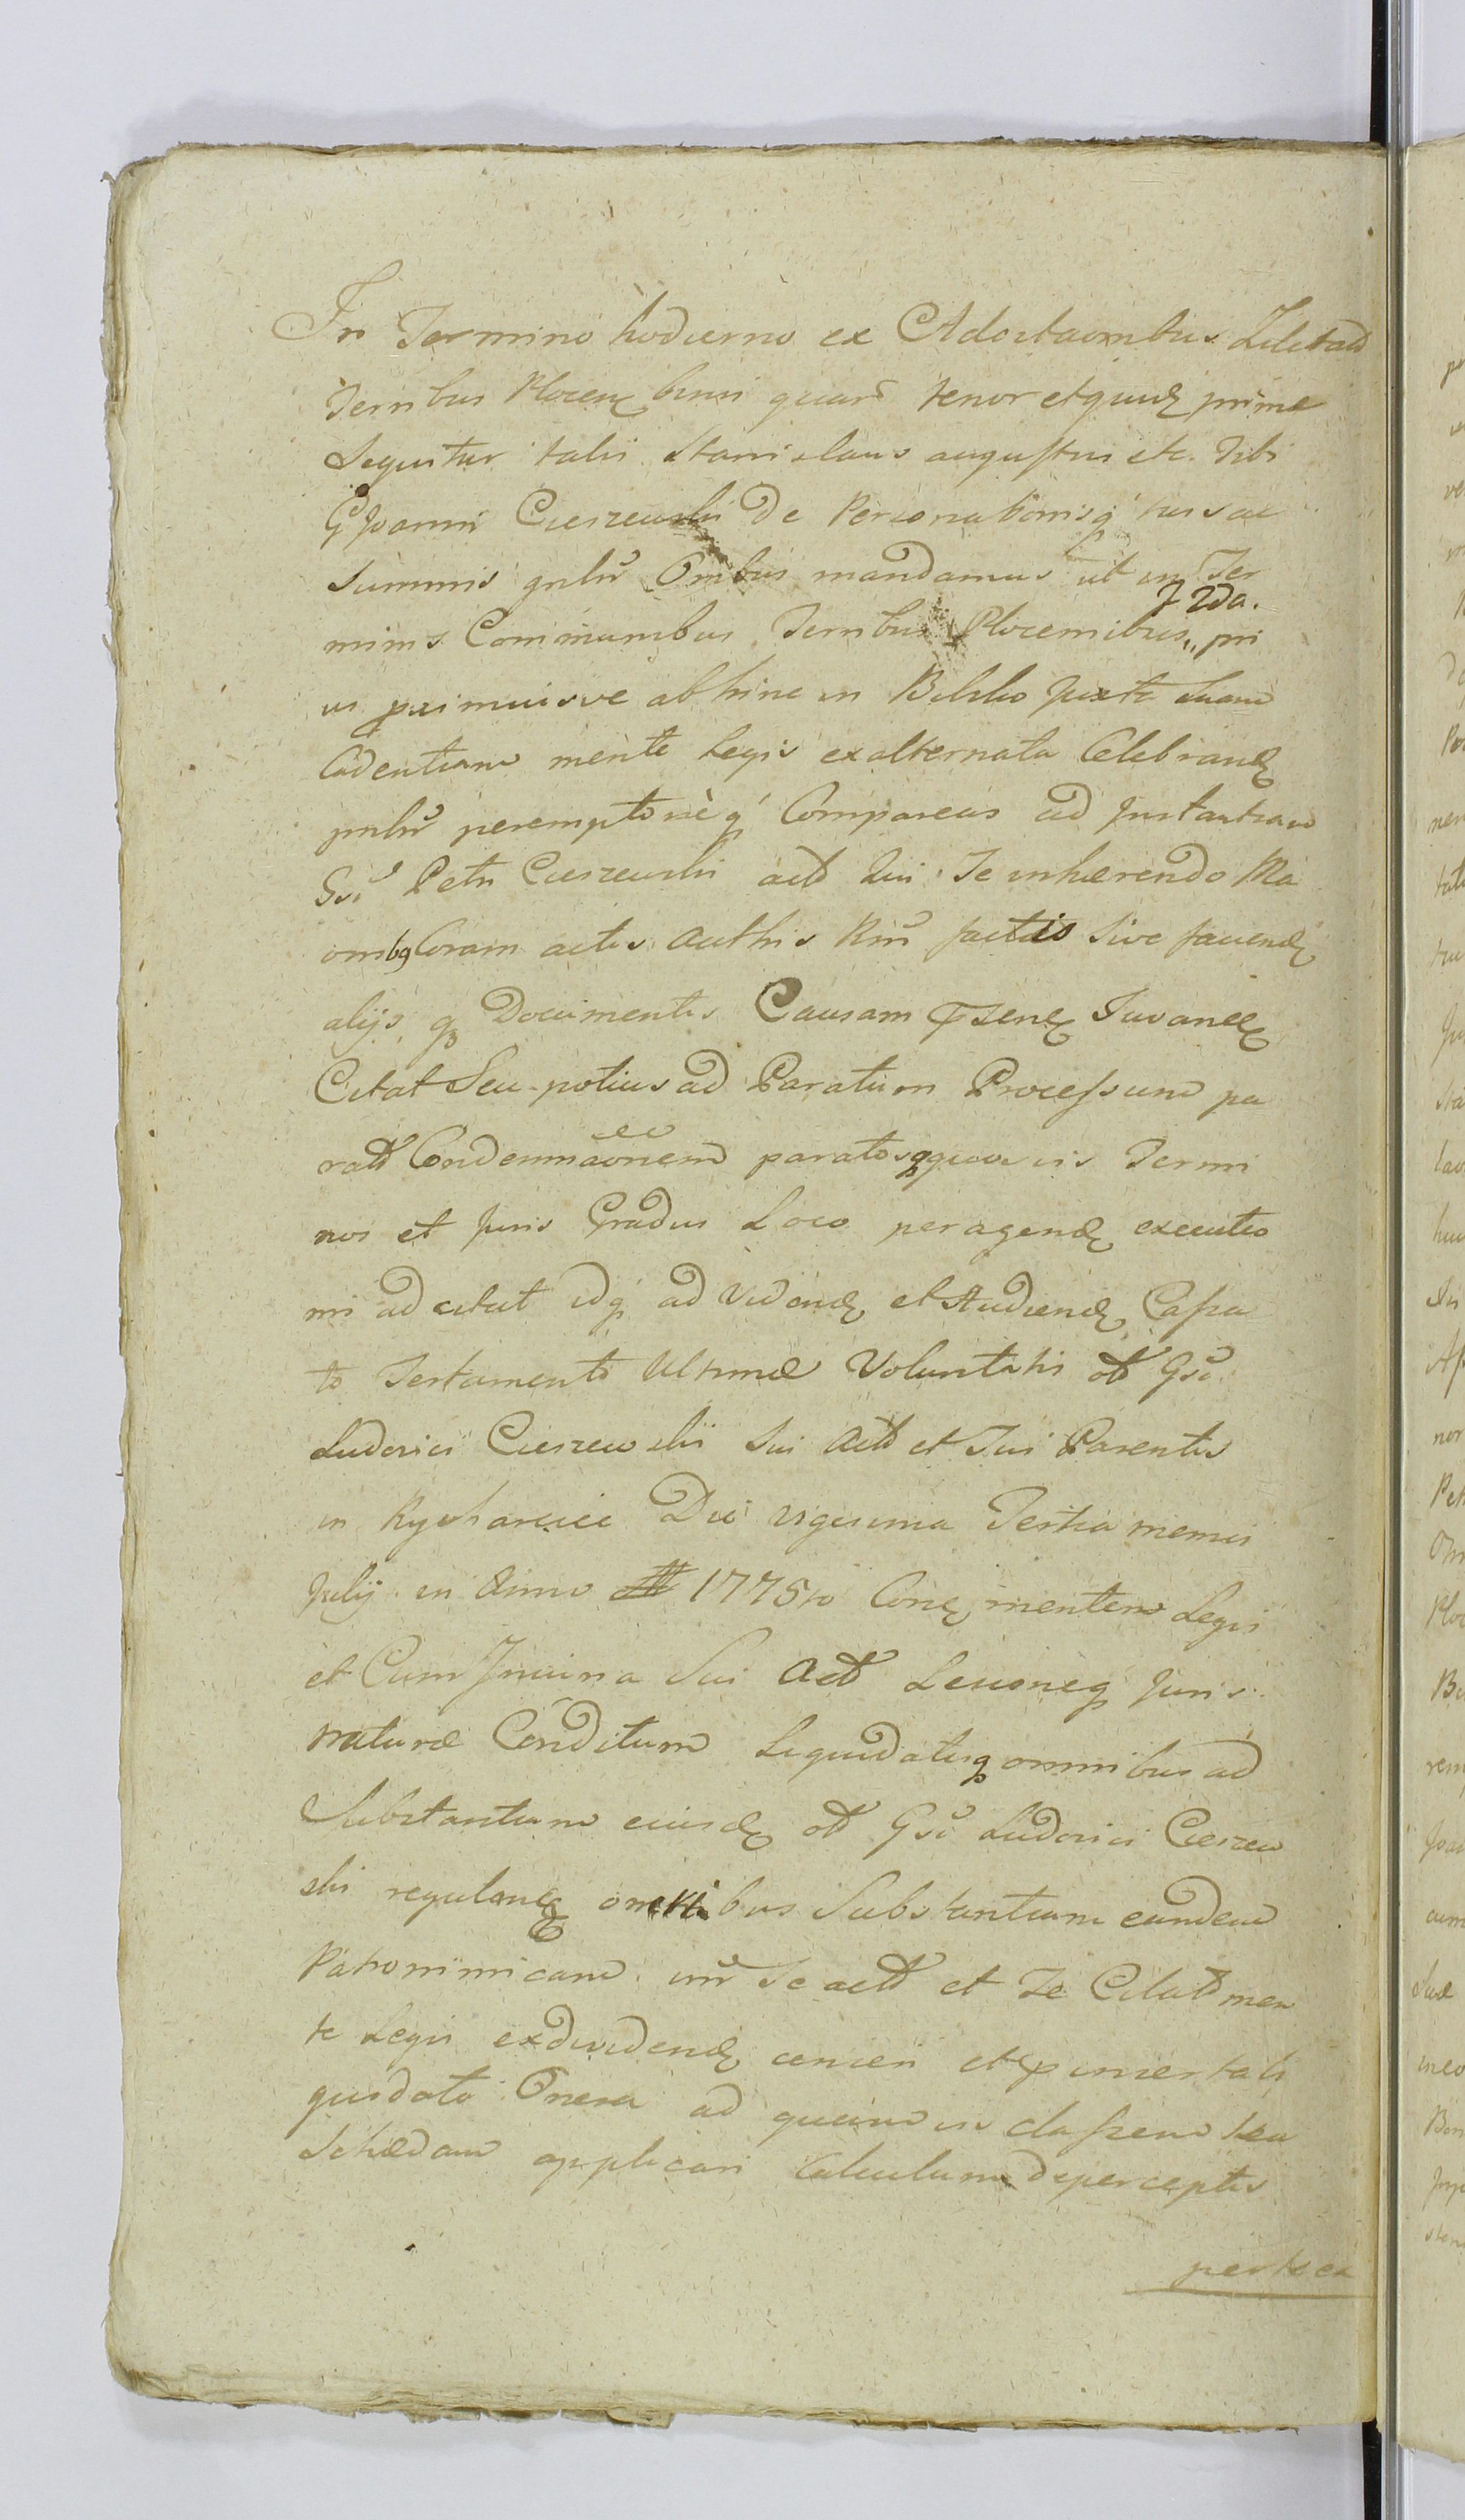 In Termino hodierno ex Adcitaōnibus
Terribus Plocen̄ binis quarū tenor etquid prime
Sequitur talis Stanislaus augustus etc. Tibi
G Joanni Cieszewski De Personabonisq́ tuis ac
Summis gnlr̄ Omibus mandamus ut in Ter
minis Communibus Terribus Plocensibus,, pri
J 2da.
us primiusve abhinc in Bielsko Juxta suam
Cadentiam mente Legis exalternata Celebrand
pnlr̄ peremptorièq́ Compareas ad Instantiam
Gsi Petri Cieszewski actō qui Te inhærendo Ma
onibg Coram actis Authis Rm̄ factis sive faciend
alijs qz Documentis Causam Psen Iuvan
Citat Seu potius ad Paratum Processum pa
ratā Condemnāōnem paratosqquosvis Termi
nos et Juris Gradus Loco peragend executio
ni adcitat idq́ ad Videnđ et Audienđ Cassa
to Testamento Ultimæ Voluntatis ol̄ Gsī
Ludovici Cieszewskï Sui actō et Tui Parentis
in Rycharcice Die vigesima Tertia mensis
Julij in Anno 1775to Con mentem Legis
et Cum Iniuria Sui Actō Lesioneq́ Juris
naturæ Conditum Liquidatisq omnibus ad
Substantiam eiusd ol̄ Gsī Ludovici Cieszew
ski regulan oneribus Substantiam eandem
Patronimicam int̄ Se actō et Te Citatū men
te Legis exdividend censeri et p universa li
quidata Onera ad quam in classem seu
Schædam applicari Calculum deperceptis